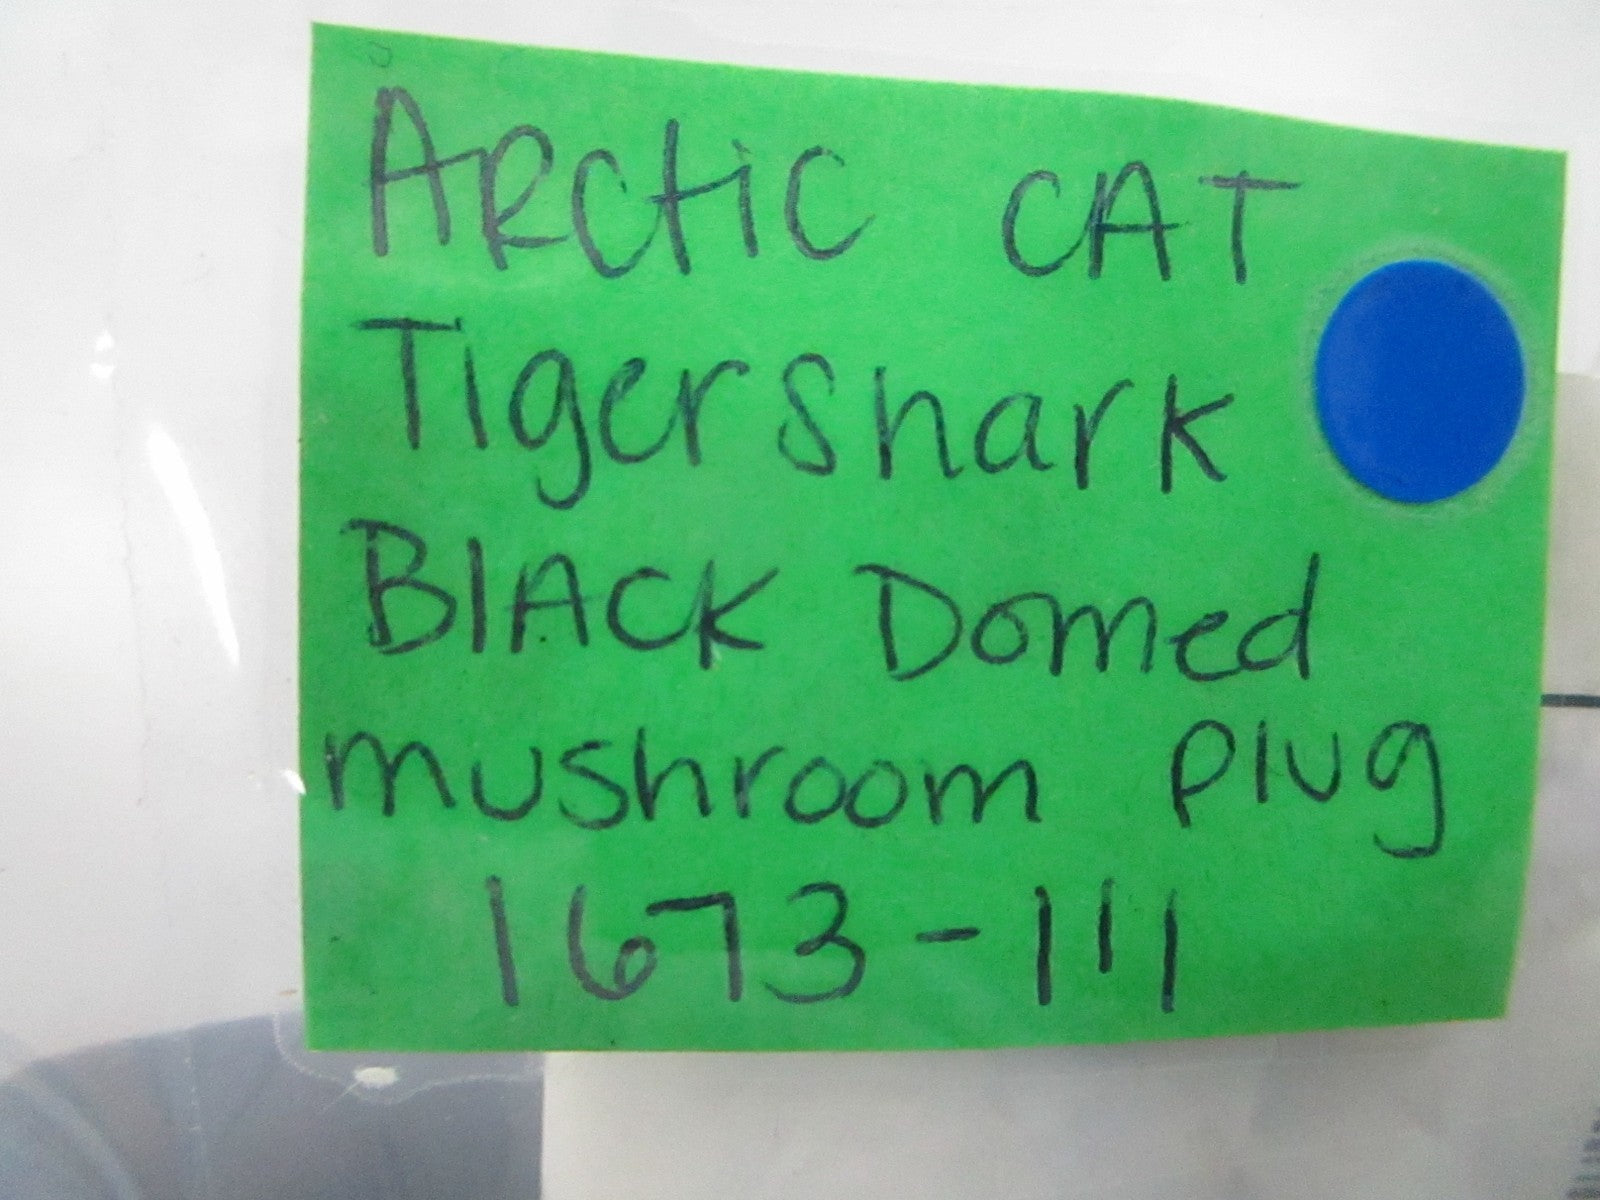 ARctic CAT
Tigershark
BlACK Domed
mushroom plug
1673-111